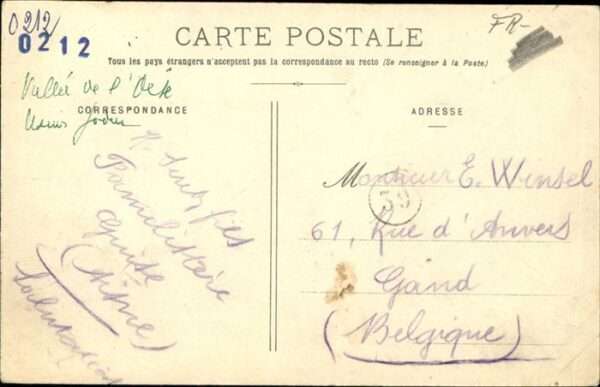 0212
0212
FR-
CARTE POSTALE
Tous les pays étrangers n'acceptent pas la correspondance au recto (Se renseigner à la Poste)
Vallée de l'Oise
Usines Godin
CORRESPONDANCE
Familistère
Guise
(Aisne)
Salutations
ADRESSE
Monsieur E. Winsel
39
61, Rue d'Anvers
Gand
(Belgique)